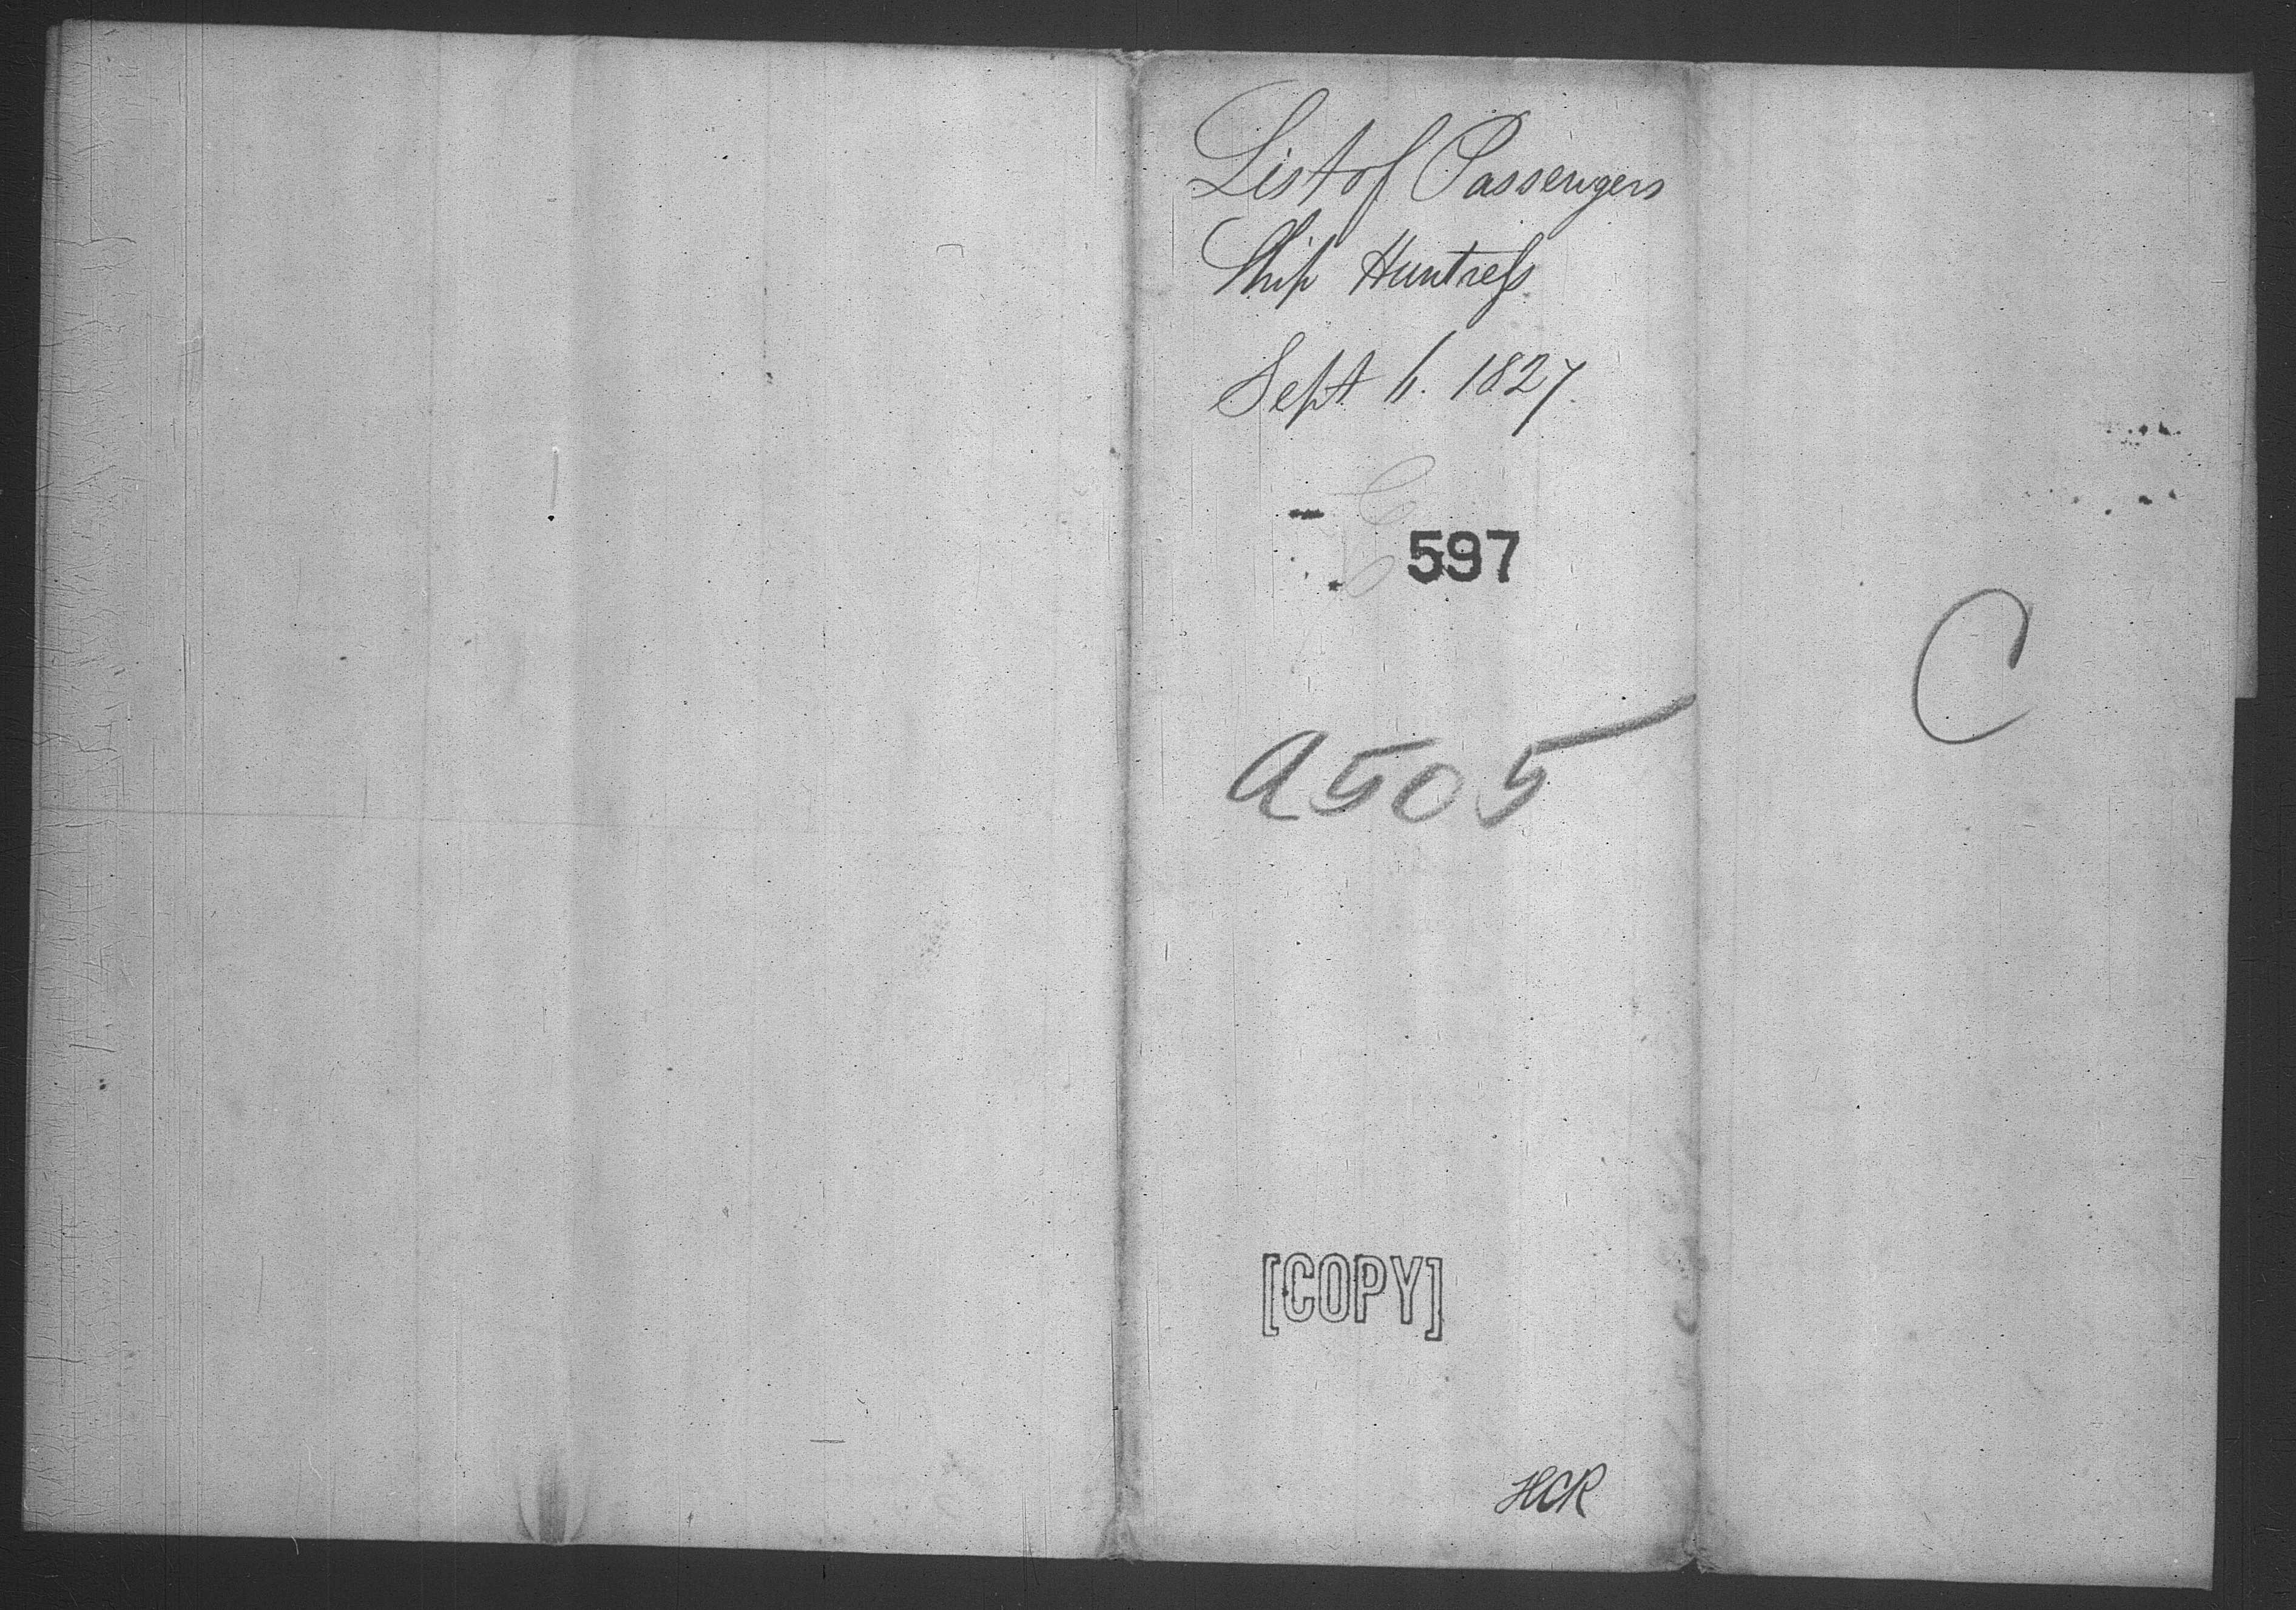 List of Passengers
Ship Huntreſs
Sept 6. 1827.
597
a505
C
[COPY]
HCR